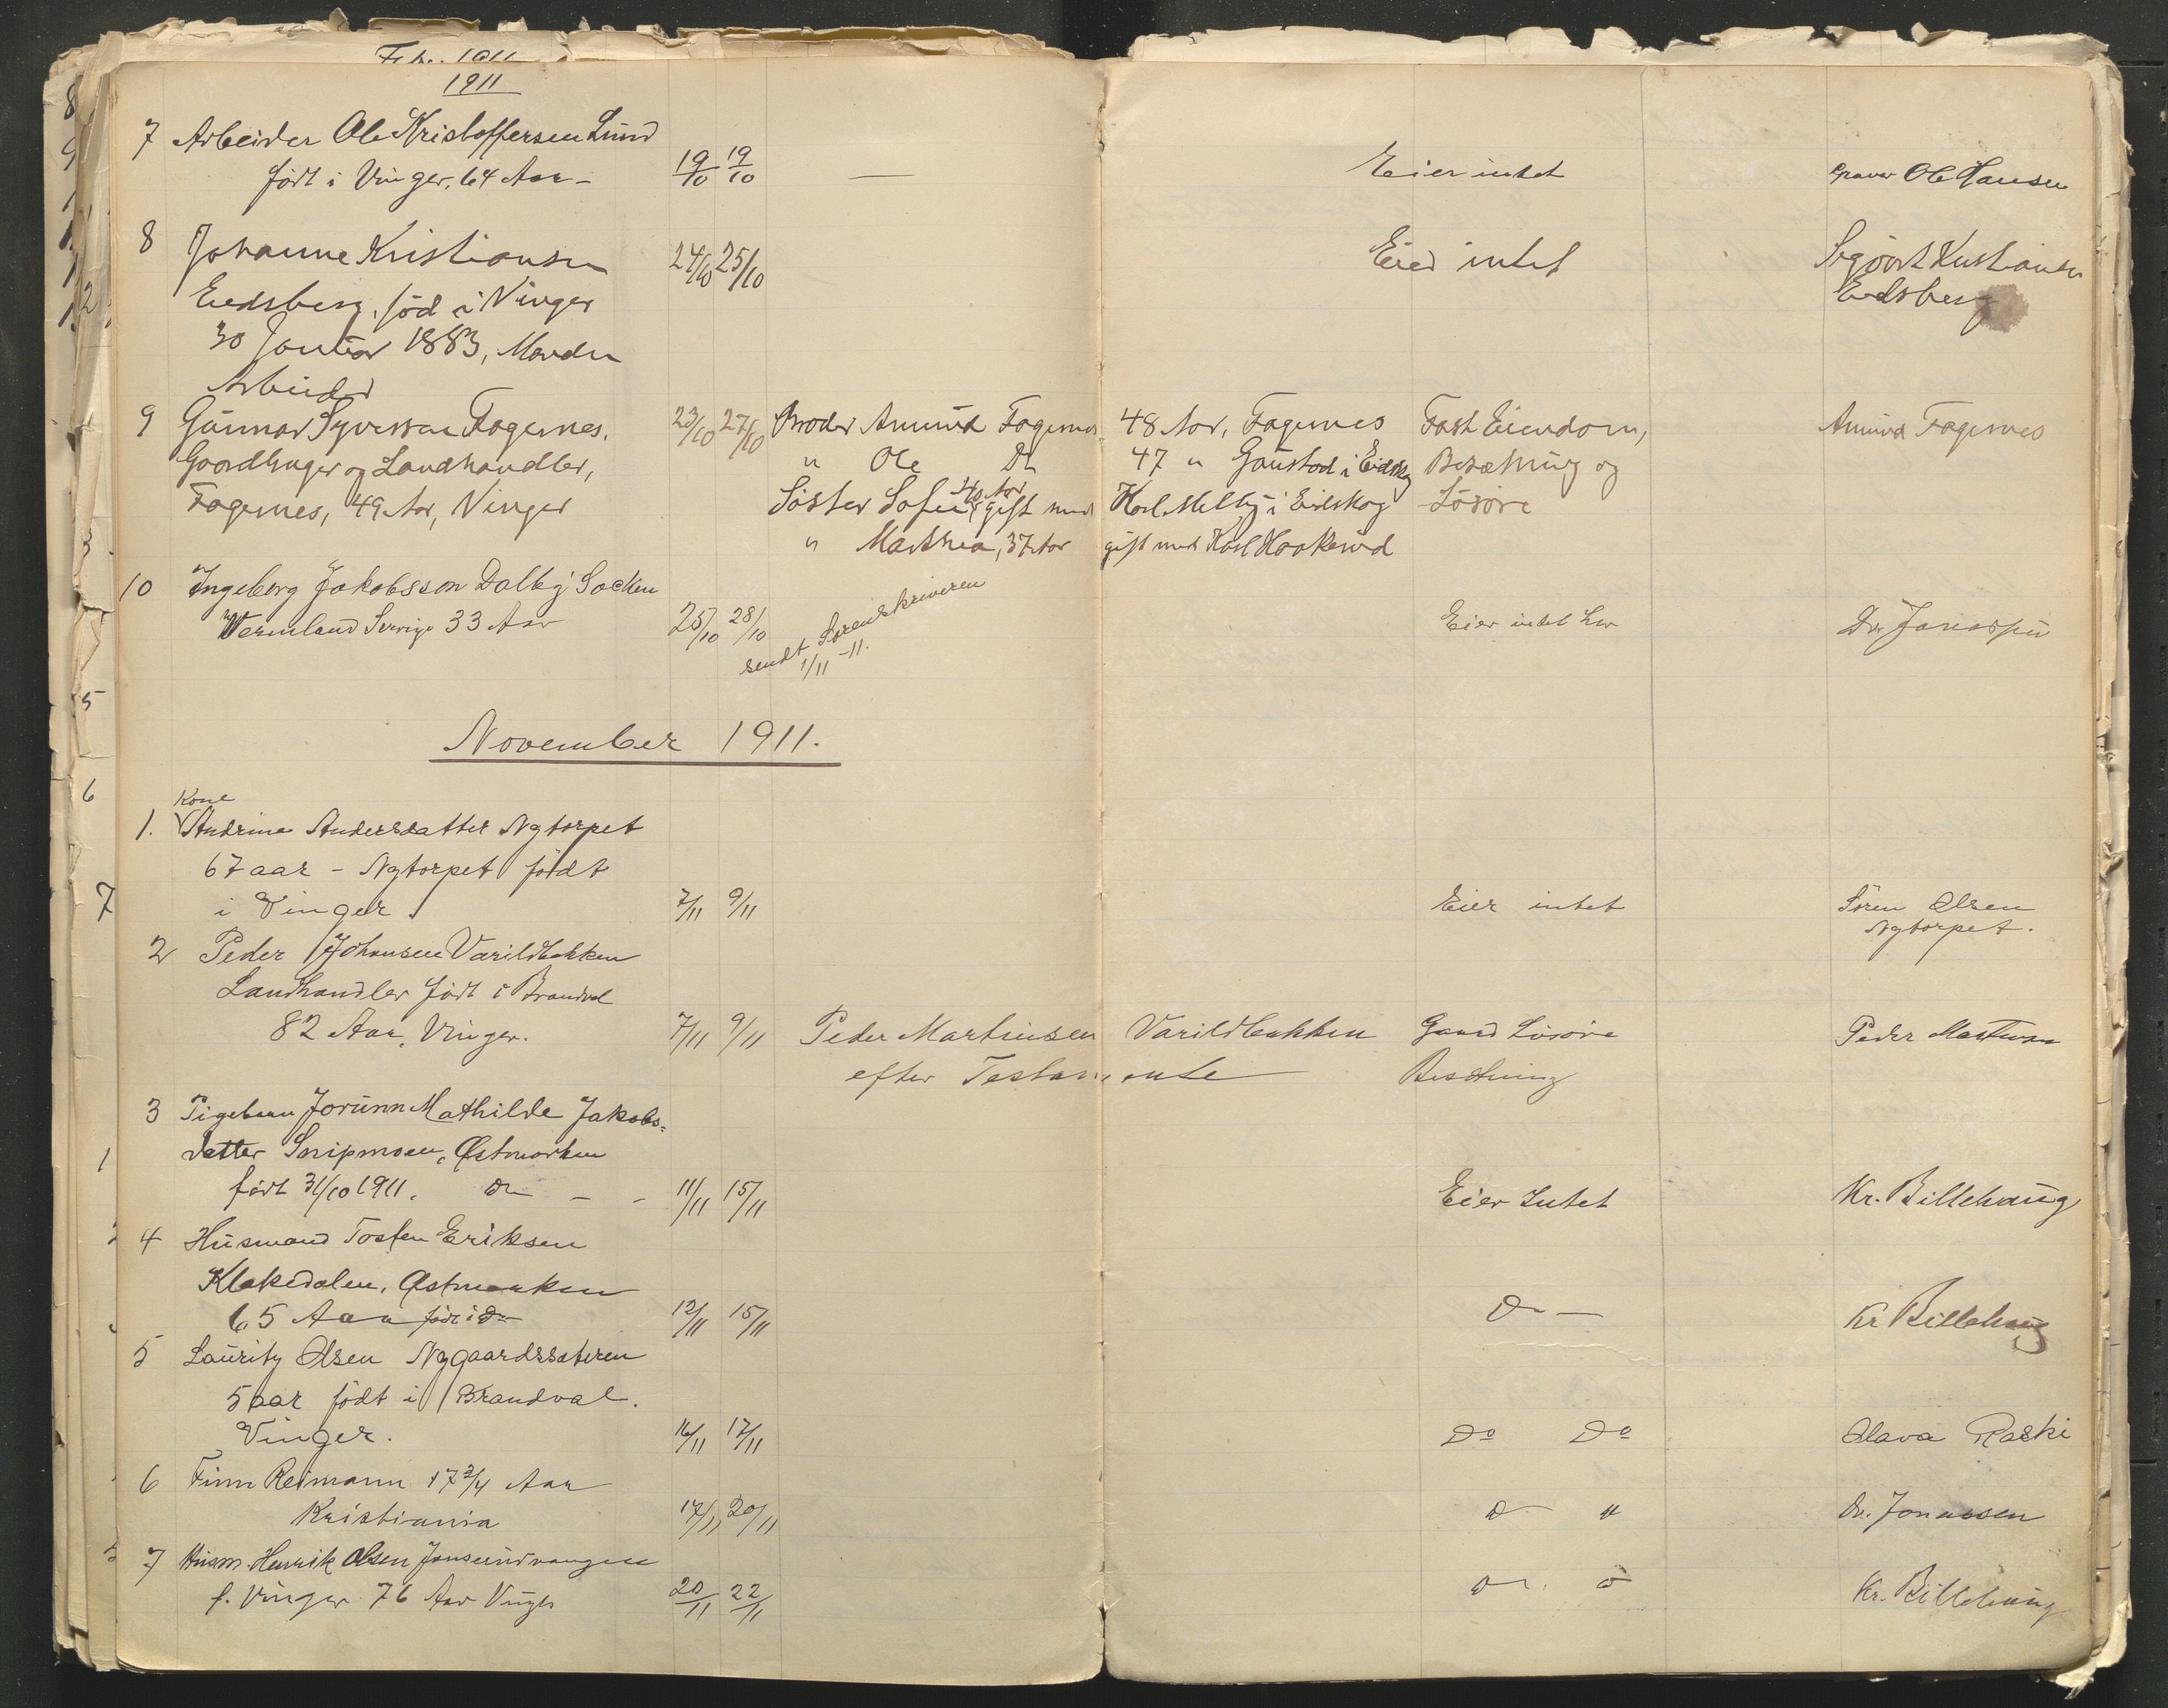 1911
7 Arbeider Ole Kristoffersen Lund
født i Vinger, 64 Aar – 19/10 19/10 — Eier intet Graver Ole Hansen
8 Johanne Kristiansen 24/10 25/10 Eied intet Sigvart Kristiansen
Eidsberg, fød i Vinger Eidsberg
30 Januar 1883, Manden
Arbeider
9 Gunnar Syversen Fagernes, 23/10 27/10 Broder Amund Fagernes 48 Aar, Fagernes Fast Eiendom, Amund Fagernes
Gaardbruger og Landhandler, " Ole Do 47 " Gaustad i Eidskog Besætning og
Fagernes, 49 Aar, Vinger Søster Sofie 40 Aar gift med Karl Melby i Eidskog Løsøre
" Marthea, 37 Aar gift med Karl Haakerud
10 Ingeborg Jakobsson Dalby Socken
Wermland Sverige 33 Aar 25/10 28/10 Eier intet her Dr Jonassen
sendt Sorenskriveren
1/11 -11.
November 1911.
Kone
1. Andrine Andersdatter Nytorpet
67 aar – Nytorpet født
i Vinger. 7/11 9/11 Eier intet Søren Olsen
Nytorpet.
2 Peder Johansen Varildbakken
Landhandler født i Brandval
82 Aar, Vinger. 7/11 9/11 Peder Martinsen Varildbakken Gaard Løsøre Peder Martinsen
efter Testamente Besætning
3 Pigebarn Jorunn Mathilde Jakobs-
datter Snipmoen, Østmarken
født 31/10 1911. Do – - 11/11 15/11 Eier Intet Kr. Billehaug
4 Husmand Tosten Eriksen
Klakedalen, Østmarken
65 Aar født i Do 12/11 15/11 Do — Kr Billehaug
5 Lauritz Olsen Nygaardssæteren
5 aar født i Brandval.
Vinger. 16/11 17/11 Do Do Olava Raski
6 Finn Reimann 17 3/4 Aar
Kristiania 17/11 20/11 D " Dr. Jonassen
7 Husm. Henrik Olsen
f. Vinger 76 Aar Vinger 20/11 22/11 Do. Do Kr. Billehaug